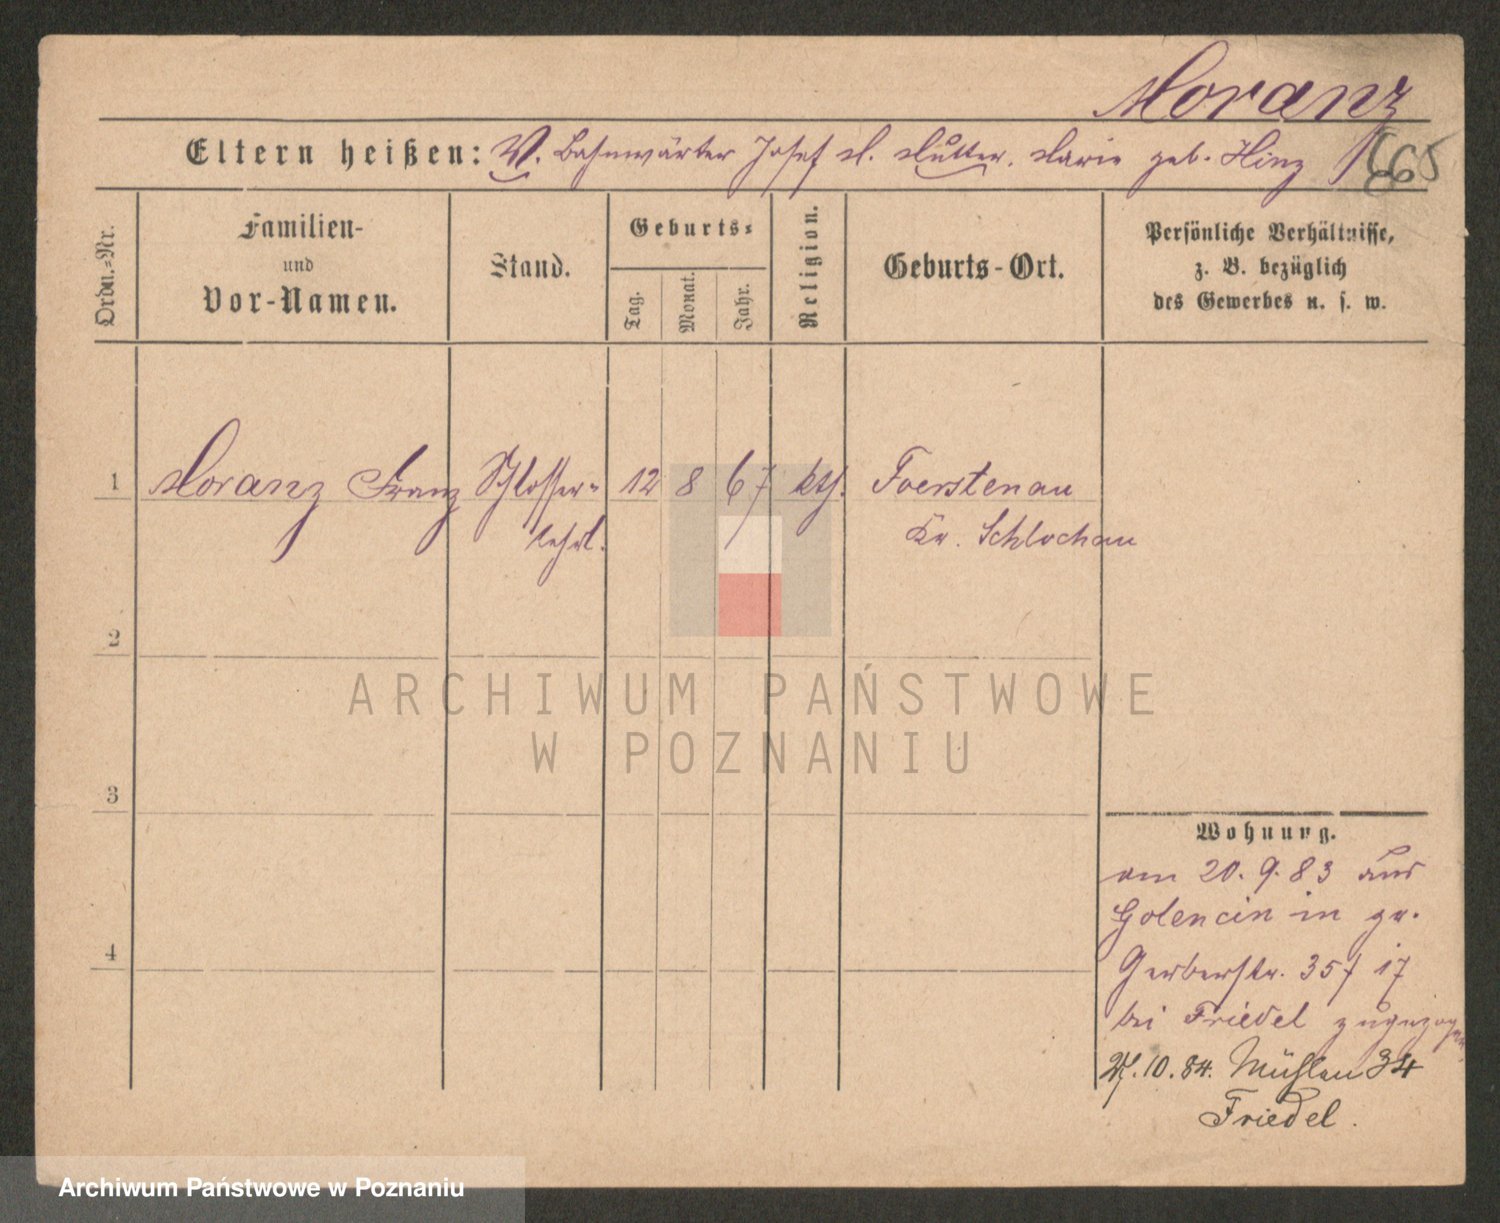 Moranz
665
Eltern heißen: V. Bahnwärter Josef M. Mutter. Marie geb. Hinz
Ordn.=Nr.
Familien-
und
Vor-Namen.
Stand.
Geburts=
Tag.
Monat.
Jahr.
Religion.
Geburts-Ort.
Persönliche Verhältnisse,
z. B. bezüglich
des Gewerbes u. s. w.
1 Moranz Franz Schlosser- 12 8 67 kth. Foerstenau
lehrl. Kr. Schlochau
2
ARCHIWUM PAŃSTWOWE
W POZNANIU
3
Wohnung.
am 20. 9. 83 aus
Golencin in gr.
4
Gerberstr. 35 / 17
bei Friedel zugezogen.
27. 10. 84. Mühlen 34
Friedel.
Archiwum Państwowe w Poznaniu